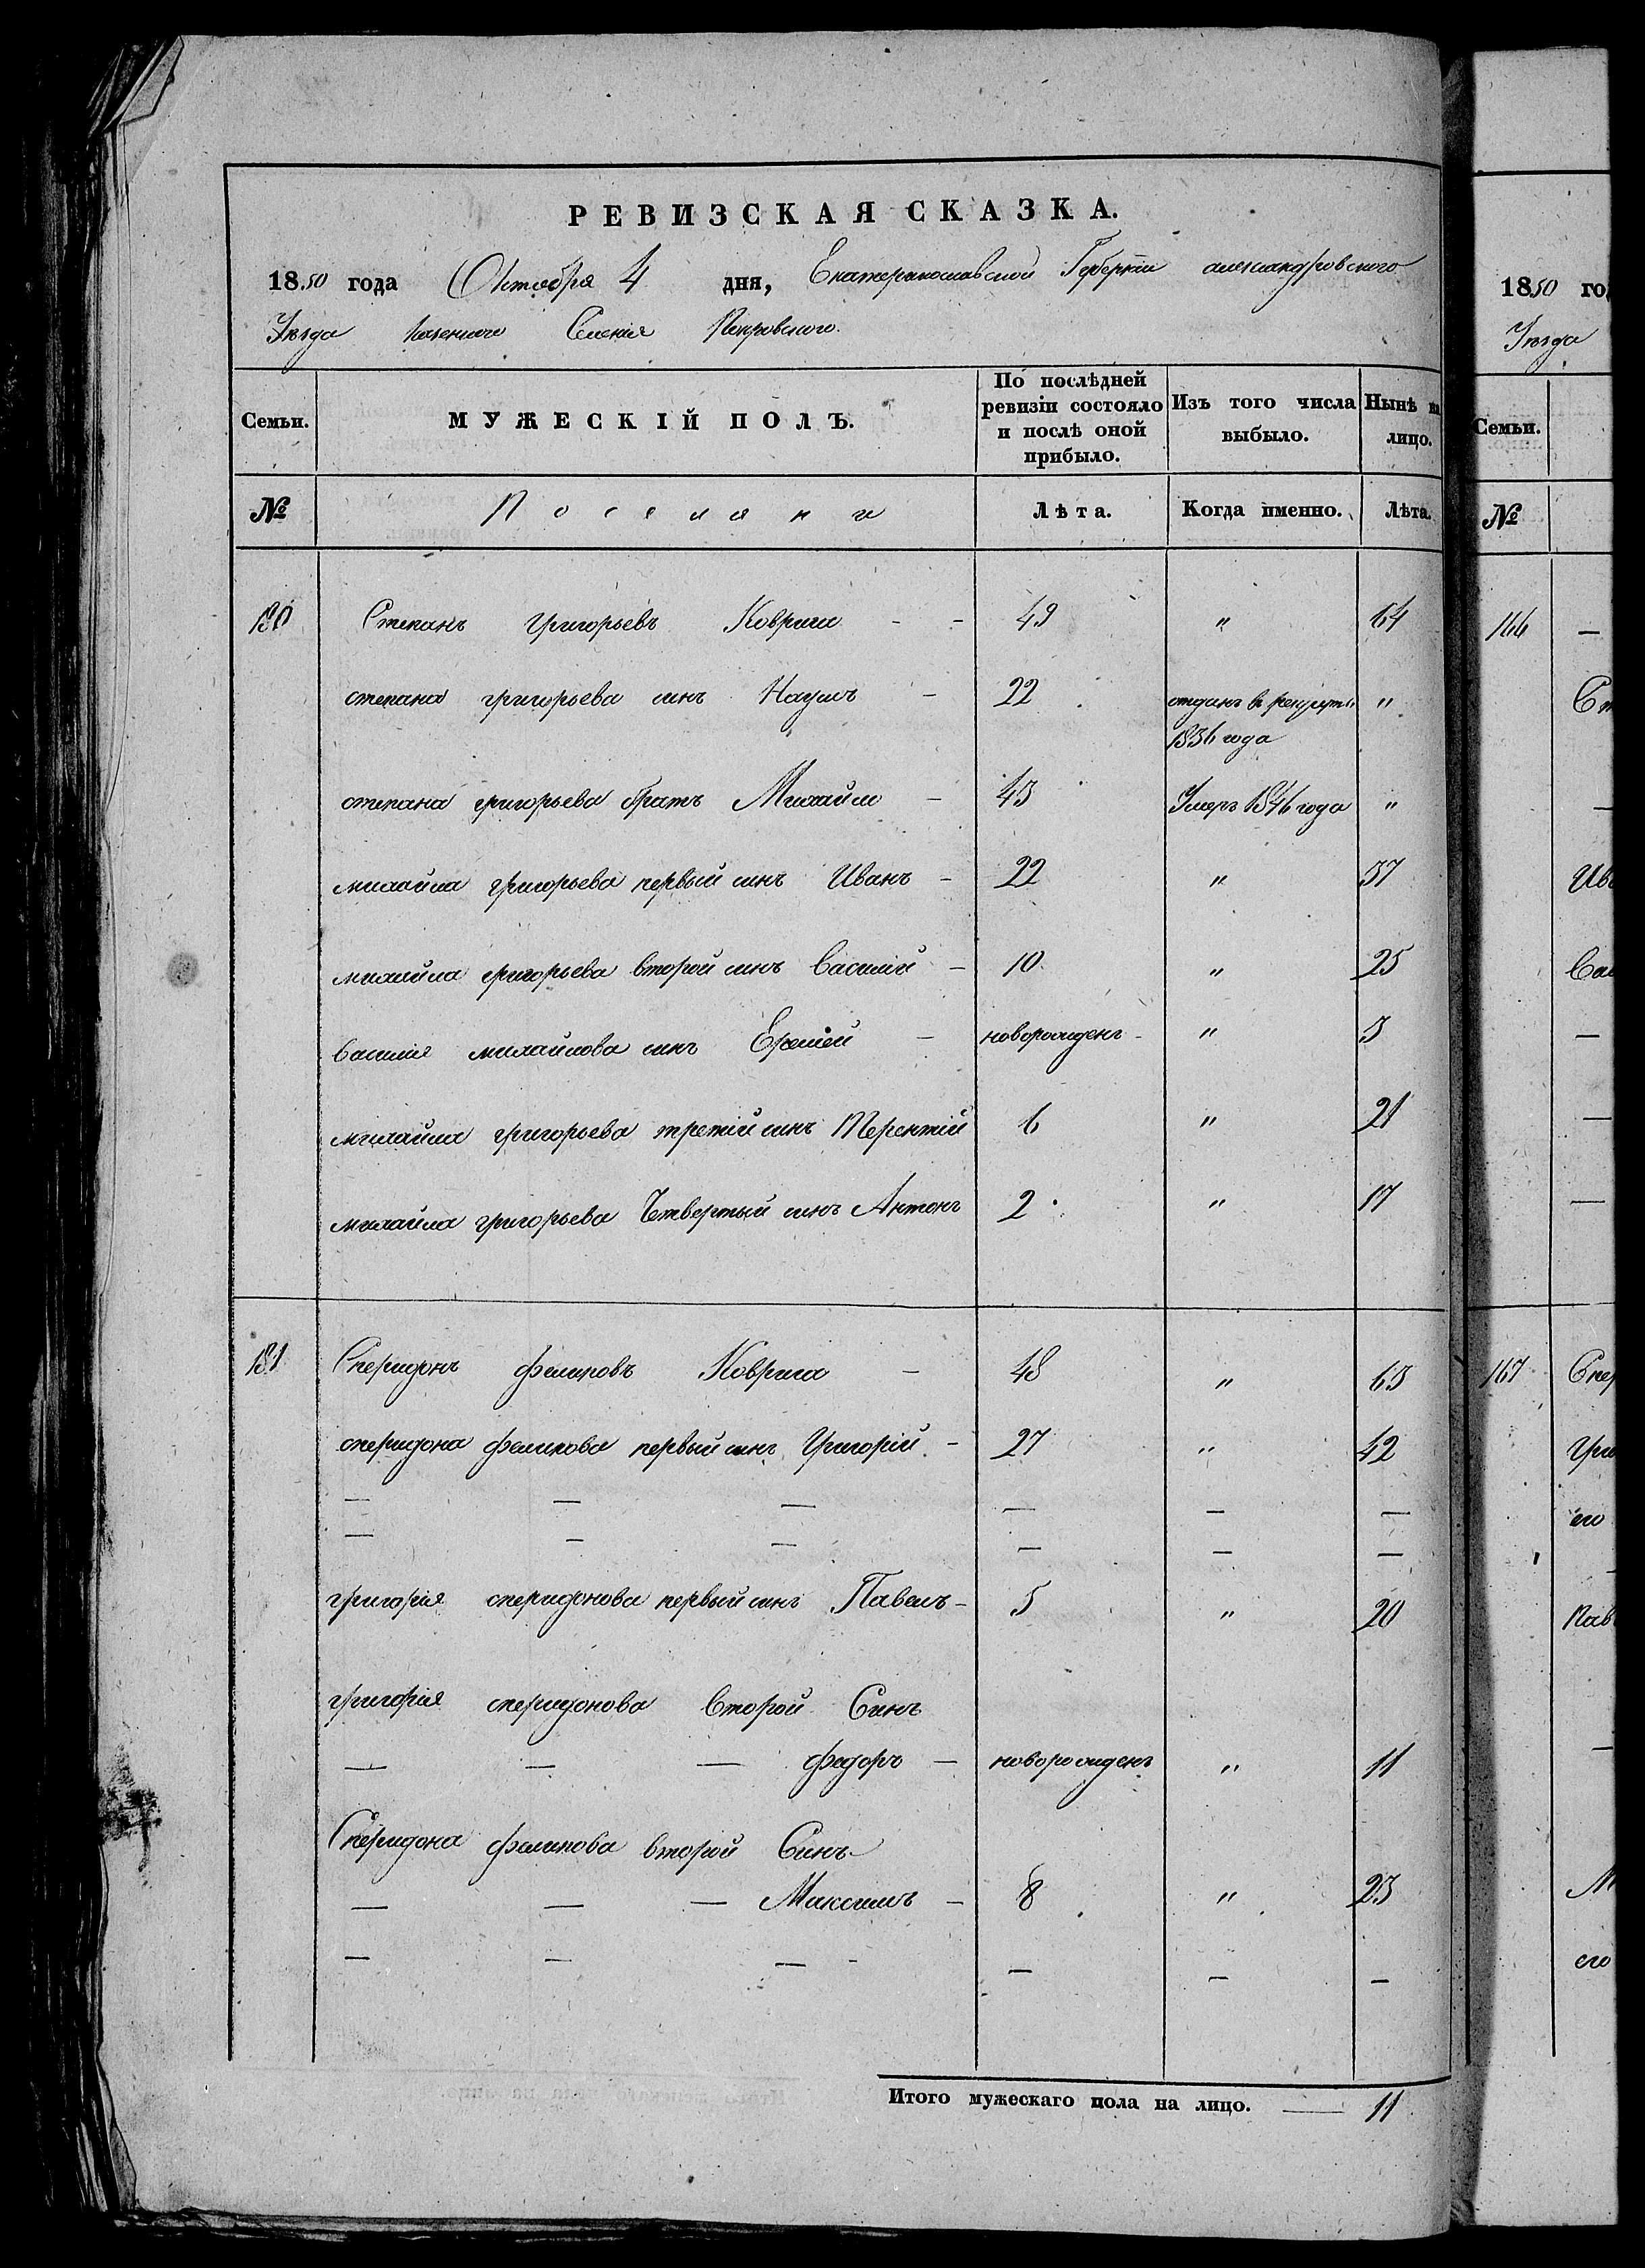 РЕВИЗСКАЯ СКАЗКА.
1850 года Октября 4 дня, Екатеринославской Губернии александровского
Уѣзда Казенного Селенія Покровского.
Семьи. МУЖЕСКІЙ ПОЛЪ. По послѣдней ревизіи состояло и послѣ оной прибыло. Изъ того числа выбыло. Нынѣ на лицо.
№ Поселяни Лѣта. Когда именно. Лѣта.
180 Степанъ григорьевъ Коврига - - 49 " 64
степана григорьева синъ Наумъ - 22 отданъ в рекруты "
1836 года
степана григорьева братъ Михайло - 43 Умеръ 1846 года "
михайла григорьева первый синъ Иванъ - 22 " 37
михайла григорьева второй синъ Василій - 10 " 25
василія михайлова синъ - новорожденъ - " 3
михайла григорьева третій синъ Терентій 6 " 21
михайла григорьева Четвертый синъ Антонъ 2 " 17
181 Спиридонъ филиповъ Коврига - 48 " 63
спиридона филипова первый синъ Григорій - 27 " 42
— — — — — —
— — — — — —
григорія спиридонова первый синъ Павелъ - 5 " 20
григорія спиридонова второй Синъ
— — — федоръ - новорожденъ " 11
Спиридона филипова второй Синъ
— — — Максимъ - 8 " 23
— — — - — — —
Итого мужескаго пола на лицо. — 11
1850 го
Уѣзда
Семьи.
№
166 —
Ст
—
Ива
Вас
—
—
—
167 Спи
Гри
его
Пав
—
М
его